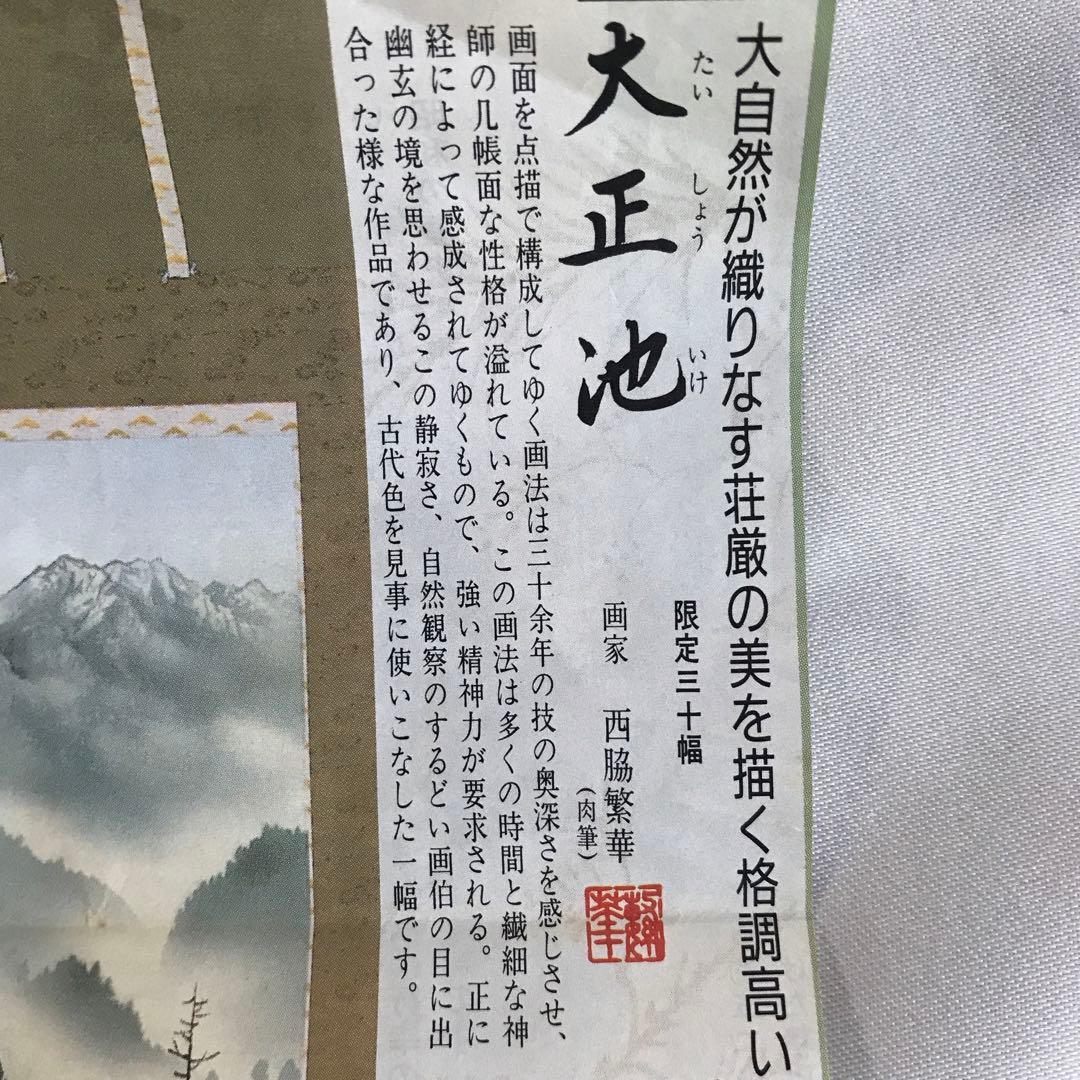 大自然が織りなす荘厳の美を描く格調高い
大正池
たいしょういけ
限定三十幅
画家 西脇繁華
(肉筆)
画面を点描で構成してゆく画法は三十余年の技の奥深さを感じさせ、
師の几帳面な性格が溢れている。この画法は多くの時間と繊細な神
経によって感成されてゆくもので、強い精神力が要求される。正に
幽玄の境を思わせるこの静寂さ、自然観察のするどい画伯の目に出
合った様な作品であり、古代色を見事に使いこなした一幅です。